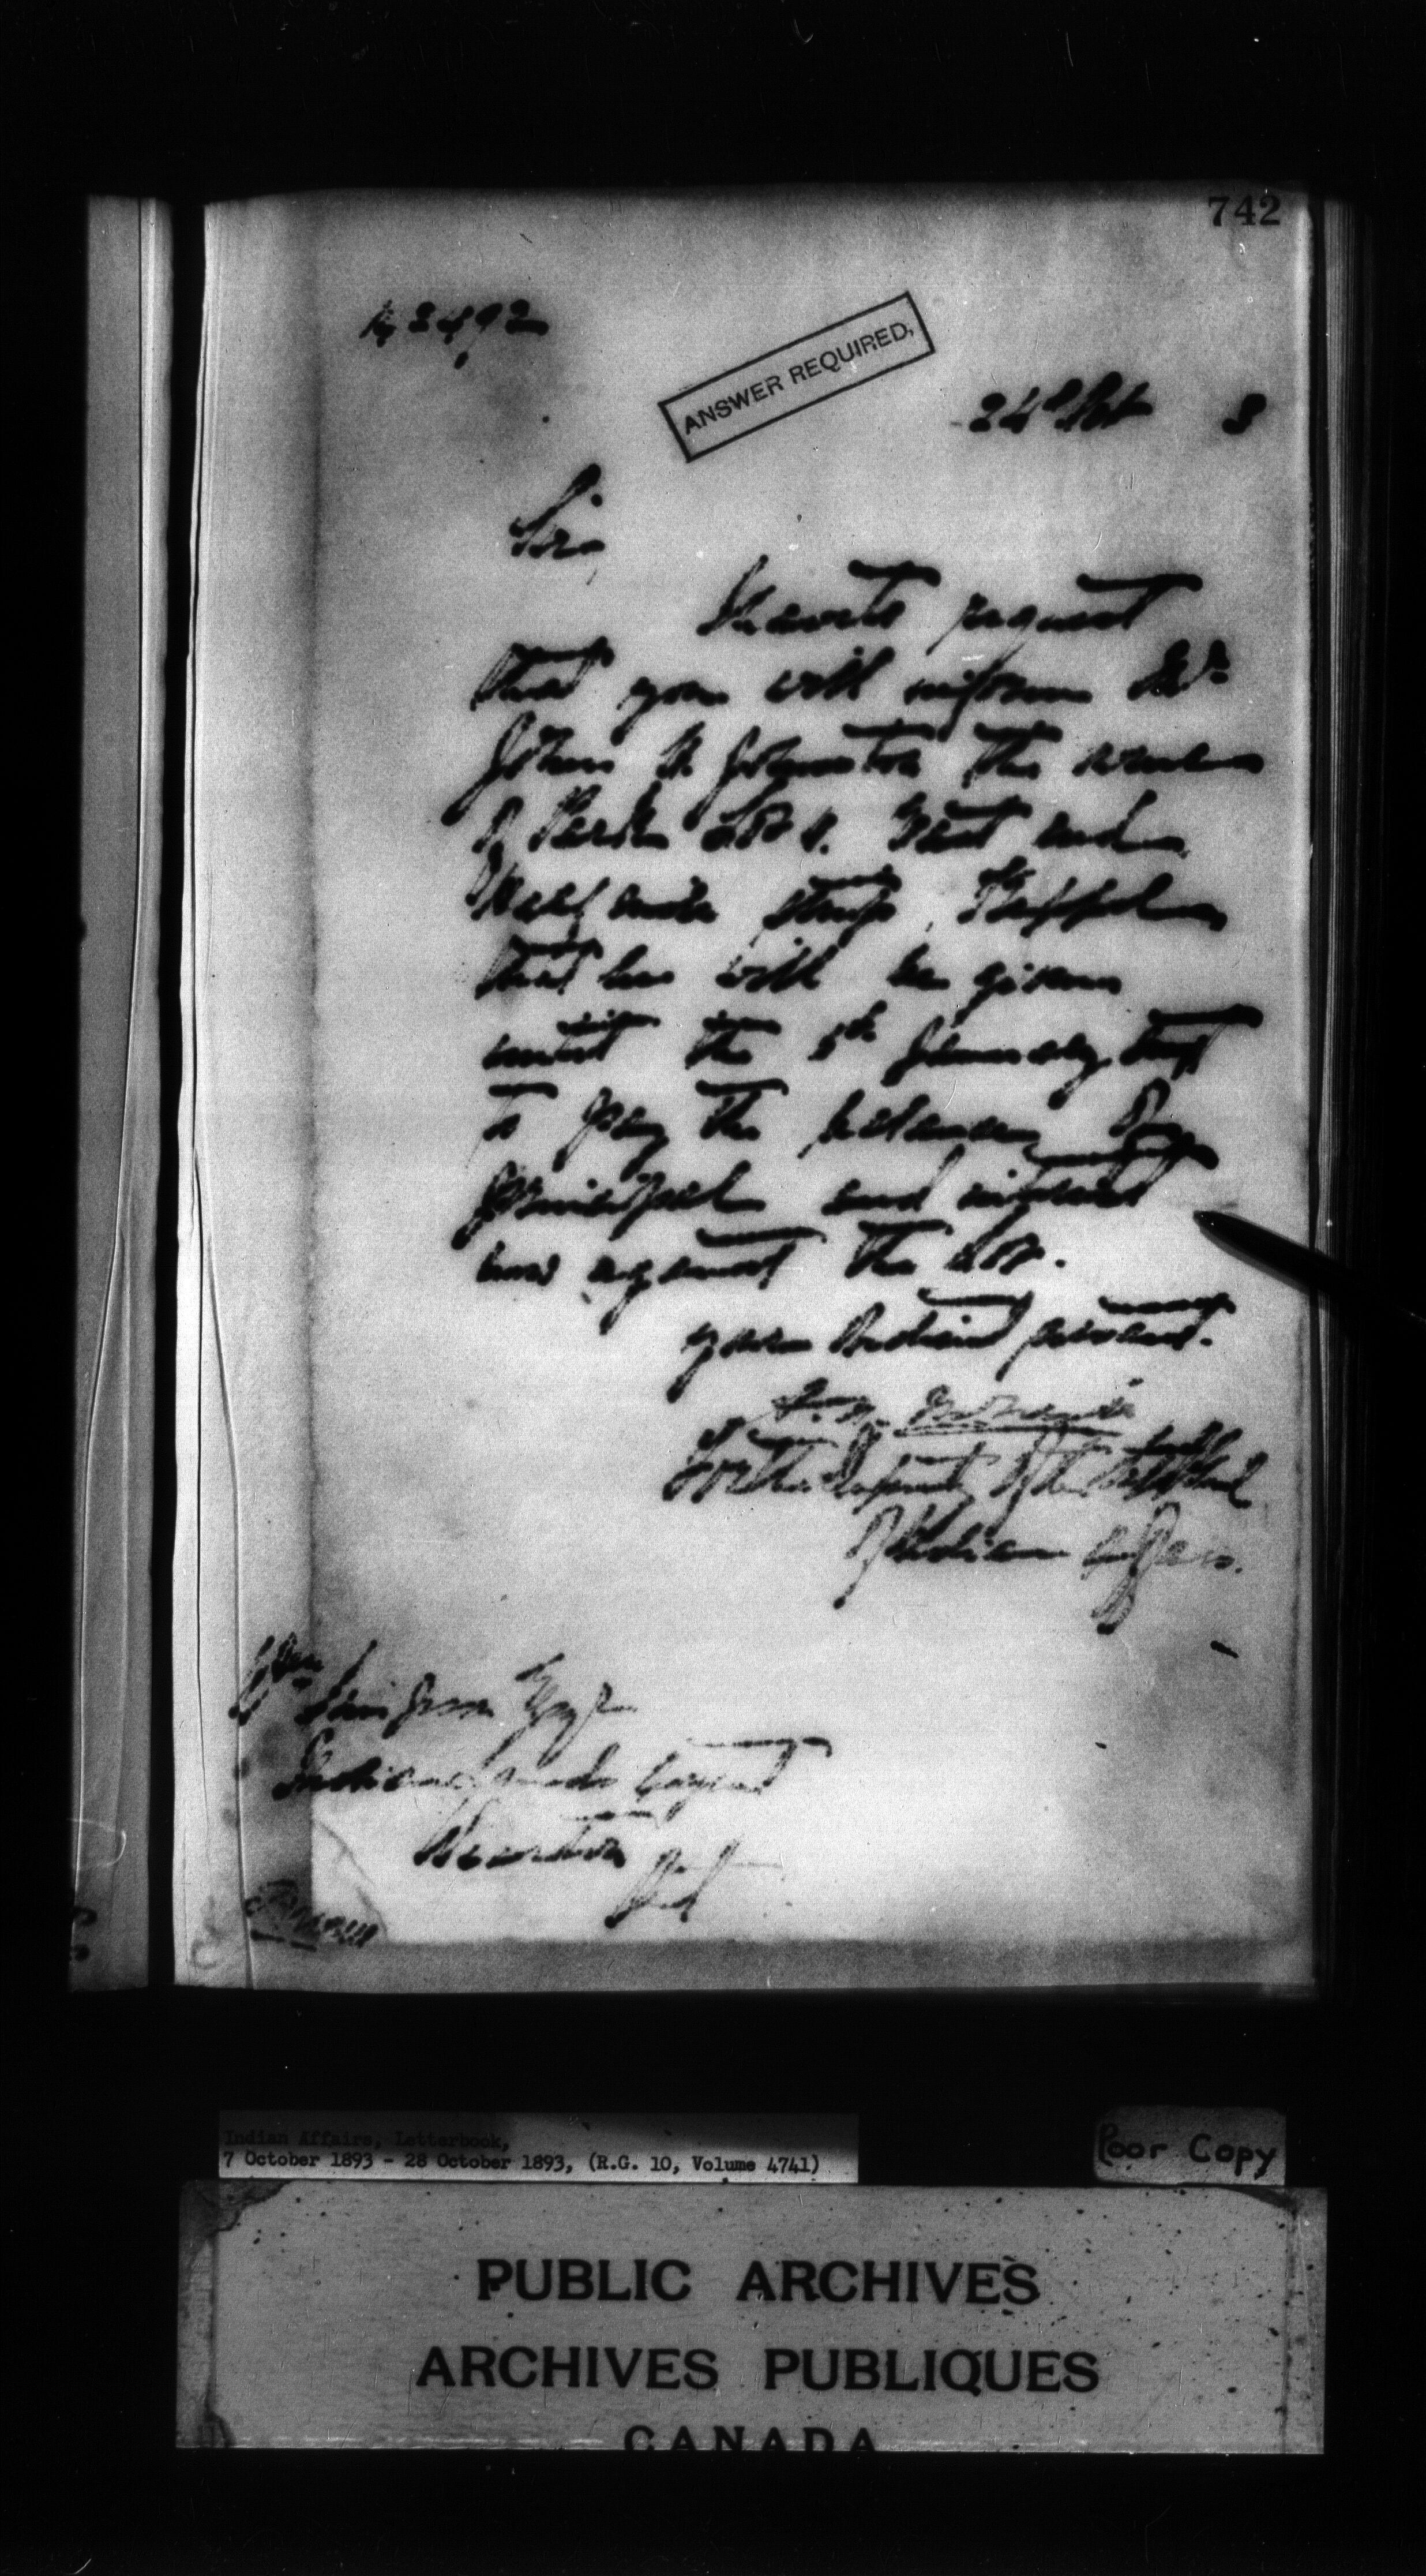 742
ANSWER REQUIRED,
24th Oct 3
Sir,
I have to request
that you will inform Mr
John Johnston the
of Park Lot West and
Half mile strip, Keppel
that he will be given
until the 5th January
to pay the balance of
principal and interest
due against the lot.
your obedient servant.
For the Deputy of the
of Indian Affairs.
Wm Simpson Esqr
Indian Lands Agent
Wiarton
Ont
Indian Affairs, Letterbook,
7 October 1893 - 28 October 1893, (R.G. 10, Volume 4741)
Poor Copy
PUBLIC ARCHIVES
ARCHIVES PUBLIQUES
CANADA